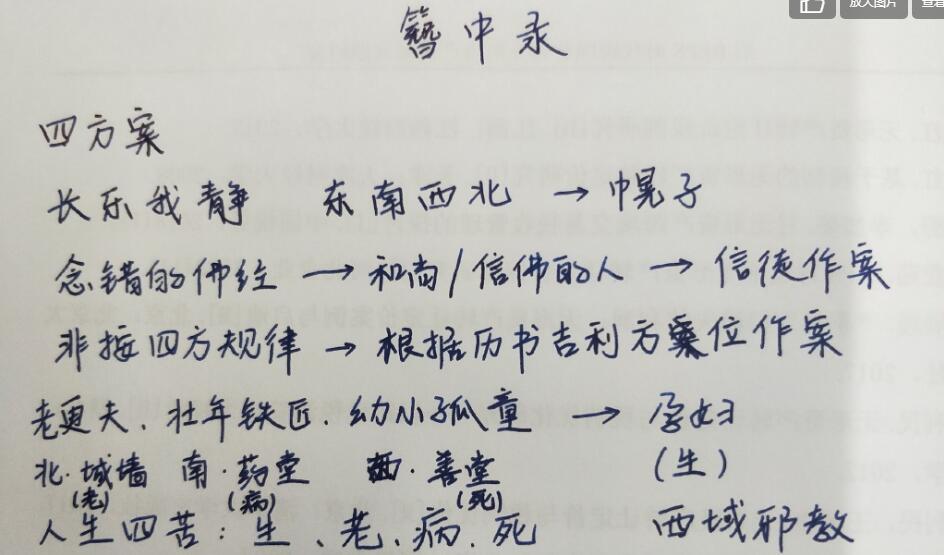 放大图片 查看
簪中录
四方案
长乐我静 东南西北 → 幌子
念错的佛经 → 和尚/信佛的人 → 信徒作案
非按四方规律 → 根据历书吉利方位作案
老更夫、壮年铁匠、幼小孤童 → 孕妇
北·城墙 南·药堂 西·善堂 (生)
(老) (病) (死)
人生四苦：生、老、病、死 西域邪教